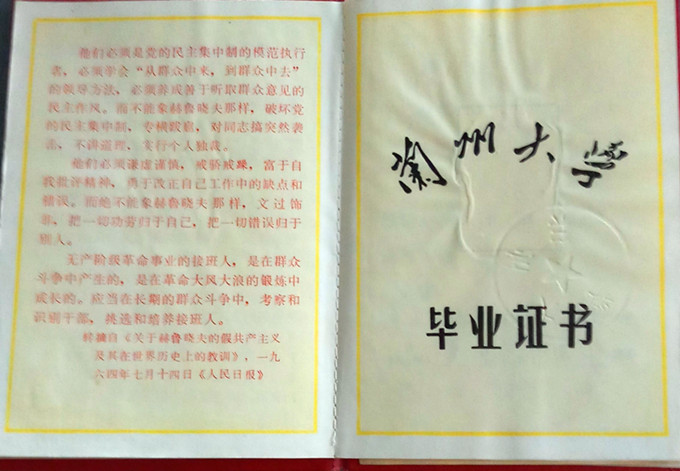 他们必须是党的民主集中制的模范执行
者，必须学会“从群众中来，到群众中去”
的领导方法，必须养成善于听取群众意见的
民主作风。而不能象赫鲁晓夫那样，破坏党
的民主集中制，专横跋扈，对同志搞突然袭
击，不讲道理，实行个人独裁。
他们必须谦虚谨慎，戒骄戒躁，富于自
我批评精神，勇于改正自己工作中的缺点和
错误。而绝不能象赫鲁晓夫那样，文过饰
非，把一切功劳归于自己，把一切错误归于
别人。
无产阶级革命事业的接班人，是在群众
斗争中产生的，是在革命大风大浪的锻炼中
成长的。应当在长期的群众斗争中，考察和
识别干部，挑选和培养接班人。
转摘自《关于赫鲁晓夫的假共产主义
及其在世界历史上的教训》，一九
六四年七月十四日《人民日报》
兰州大学
毕业证书